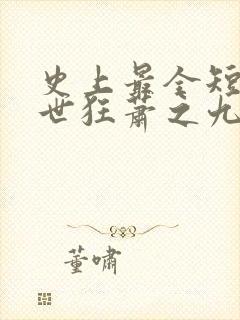 史上最全短
世狂萧之九
董啸